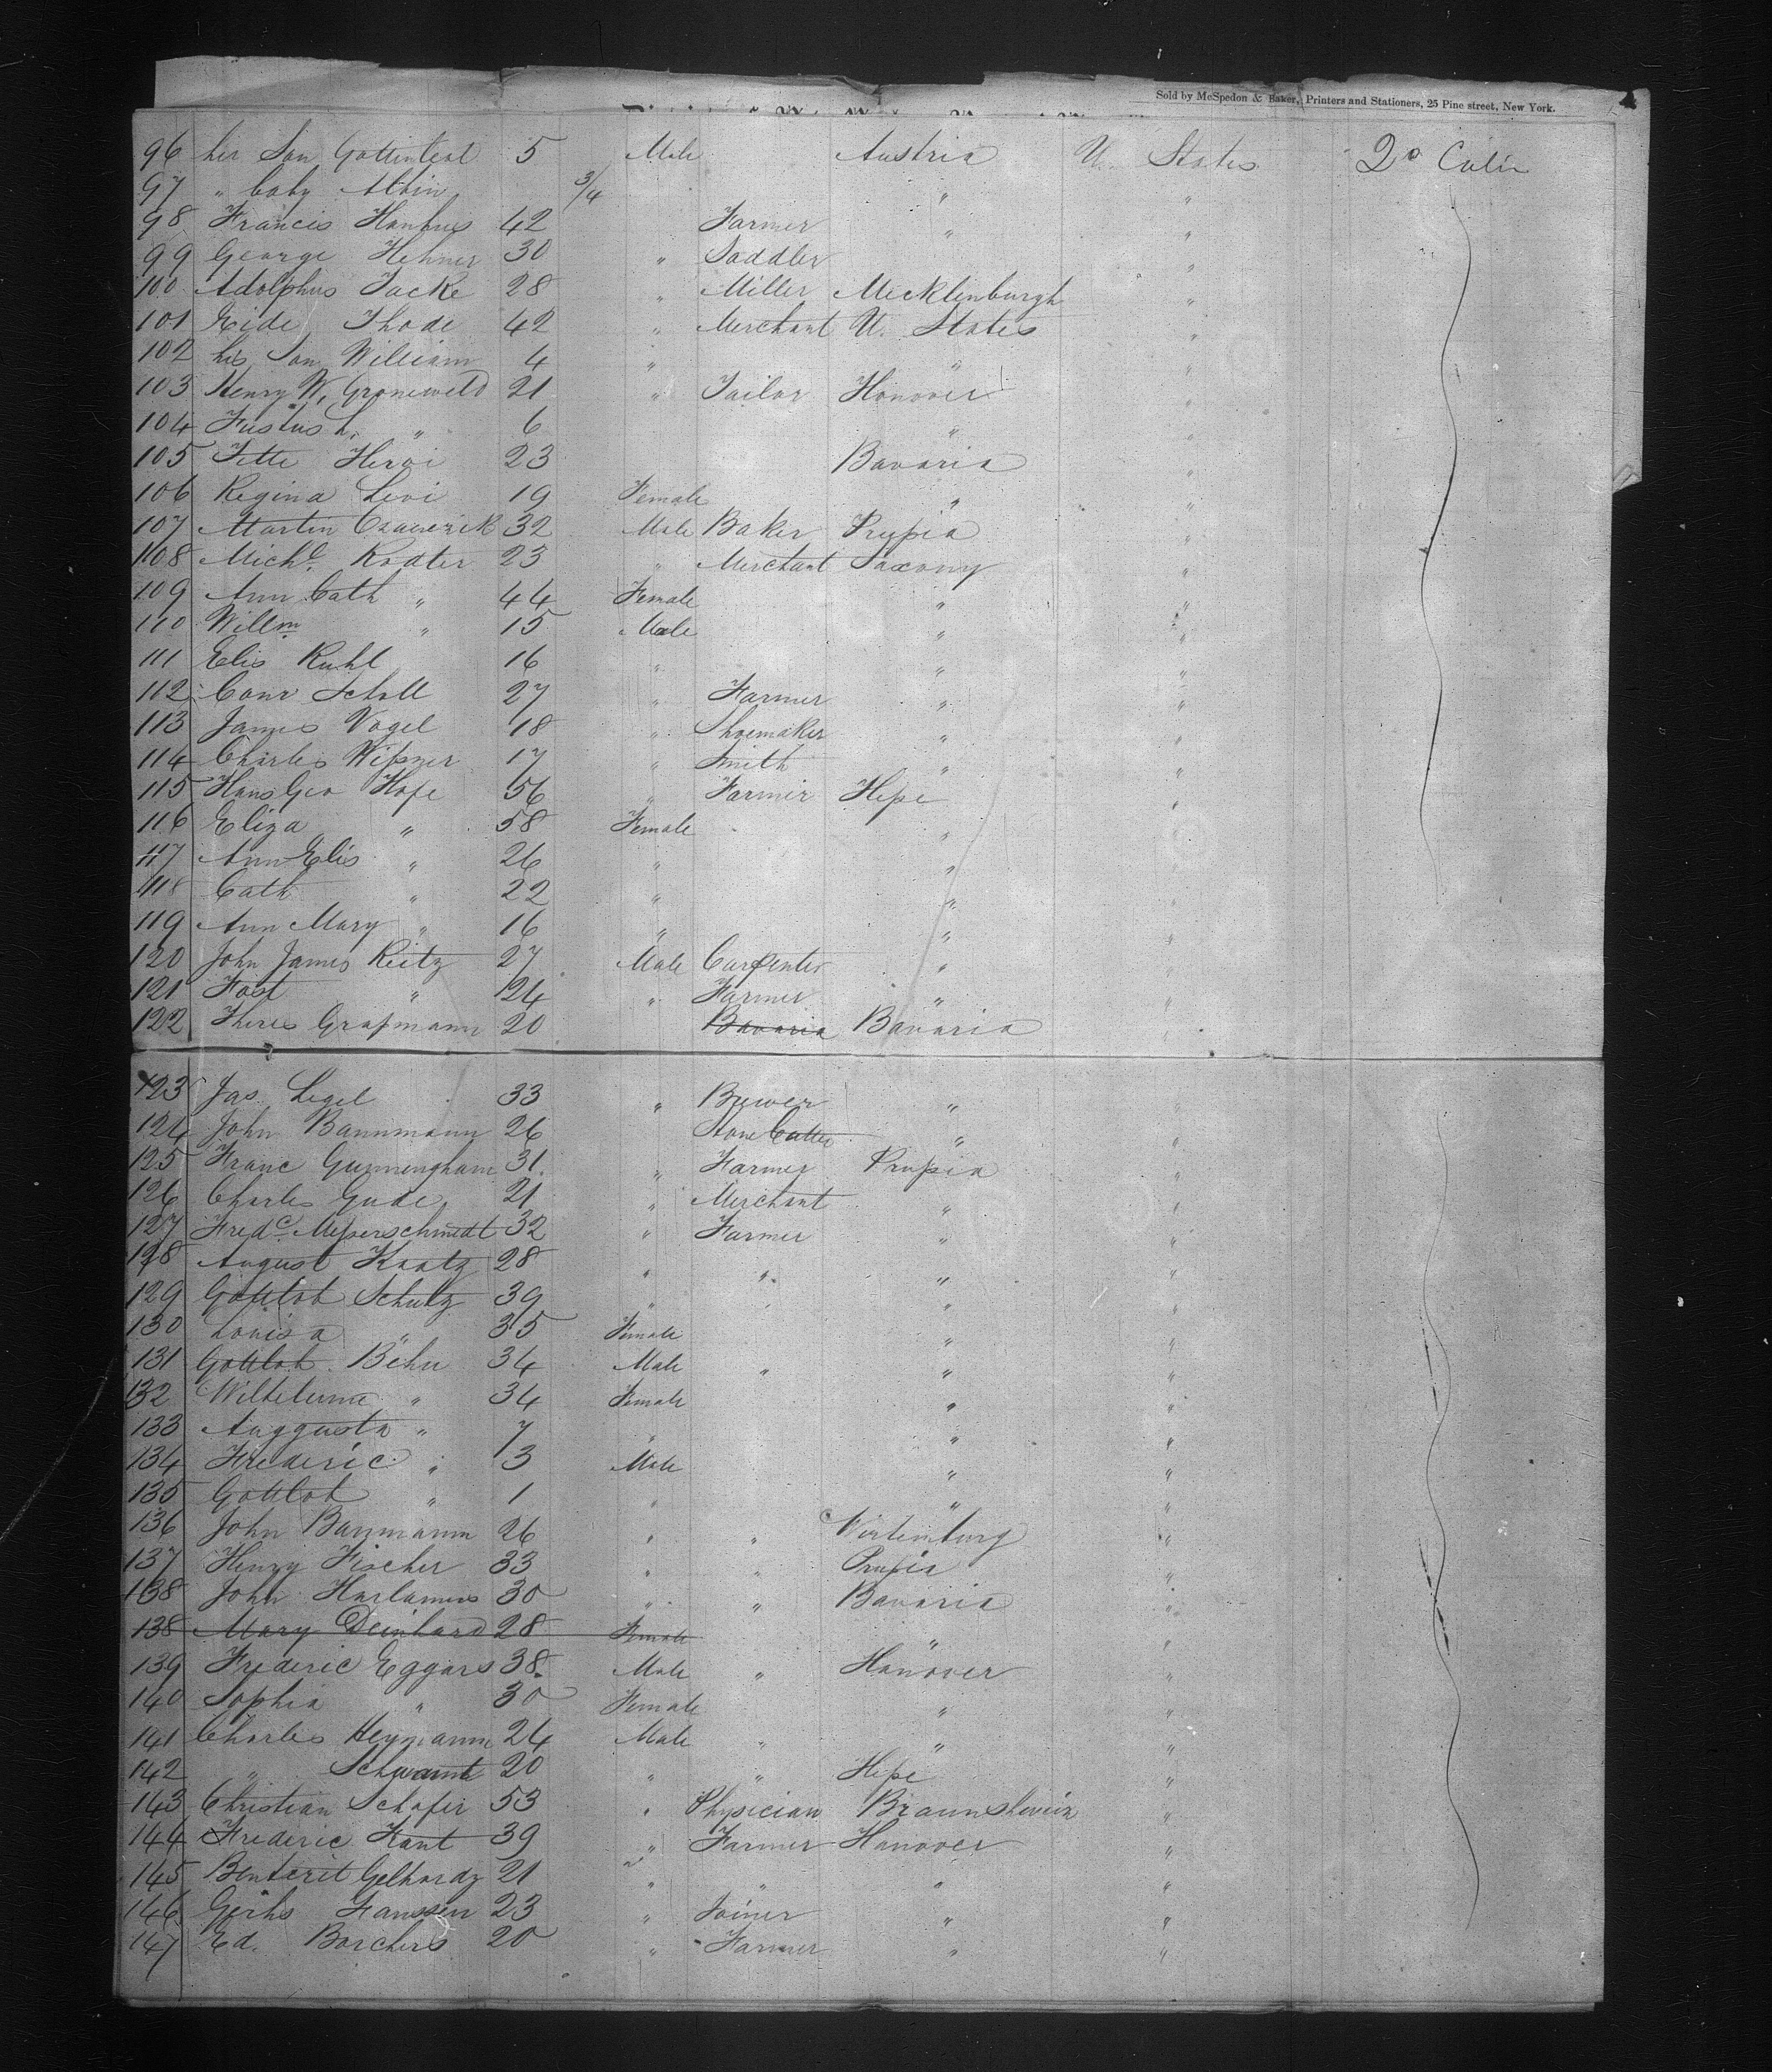 Sold by McSpedon & Baker, Printers and Stationers, 25 Pine street, New York.
96 her Son 5 Male Austria U. States 2º Cabin
97 " baby Albin 3/4 " "
98 Francis 42 Farmer " "
99 George Hehner 30 " Saddler "
100 Adolphus Jacke 28 " Miller Mecklinburgh "
101 Eide Thode 42 " Merchant U. States "
102 his Son William 4 " " "
103 Henry W. Groneweld 21 " Tailor Hanover "
104 Justus L. " 6 " "
105 Jette 23 Bavaria "
106 Regina Levi 19 Female " "
107 Martin 32 Male Baker Prussia "
108 Michl. Rodter 23 " Merchant Saxony "
109 Ann Cath " 44 Female " "
110 Willm " 15 Male " "
111 Elis Ruhl 16 " " "
112 Conr Scholl 27 " Farmer " "
113 James Vogel 18 " Shoemaker " "
114 Charles Wissner 17 " Smith " "
115 Hans Geo Hofe 56 " Farmer Hesse "
116 Eliza " 58 Female " "
117 Ann Elis " 26 " " "
118 Cath " 22 " " "
119 Ann Mary " 16 " " "
120 John James Reitz 27 Male Carpenter " "
121 Jost " 24 " Farmer " "
122 Theres Grassmann 20 Bavaria Bavaria "
123 Jas. Legel 33 " Brewer " "
124 John Bannmann 26 Stone Cutter " "
125 Franc Gunningham 31 " Farmer Prussia "
126 Charles Gude 21 " Merchant " "
127 Fredc. Messerschmidt 32 " Farmer " "
128 August Kraatz 28 " " " "
129 Gottlob Schutz 39 " " "
130 Louisa " 35 Female " "
131 Gottlob Behn 34 Male " " "
132 Wilhelmine " 34 Female " "
133 Auggusta " 7 " " "
134 Frederic " 3 Male " "
135 Gottlob " 1 " " "
136 John Banzmann 26 " " Wirtemburg "
137 Henry Fischer 33 " " Prussia "
138 John Harlamus 30 " " Bavaria "
138 Mary Deinhard 28 Female " "
139 Frederic Eggars 38 Male " Hanover "
140 Sophia " 30 Female " "
141 Charles Heymann 24 Male " " "
142 " Schwamb 20 " " Hesse "
143 Christian Schafer 53 " Physician Braunshwein "
144 Frederic Kant 39 " Farmer Hanover "
145 Gelhardz 21 " " " "
146 Gerhs Janssen 23 " Joiner " "
147 Ed. Borchers 20 " Farmer " "